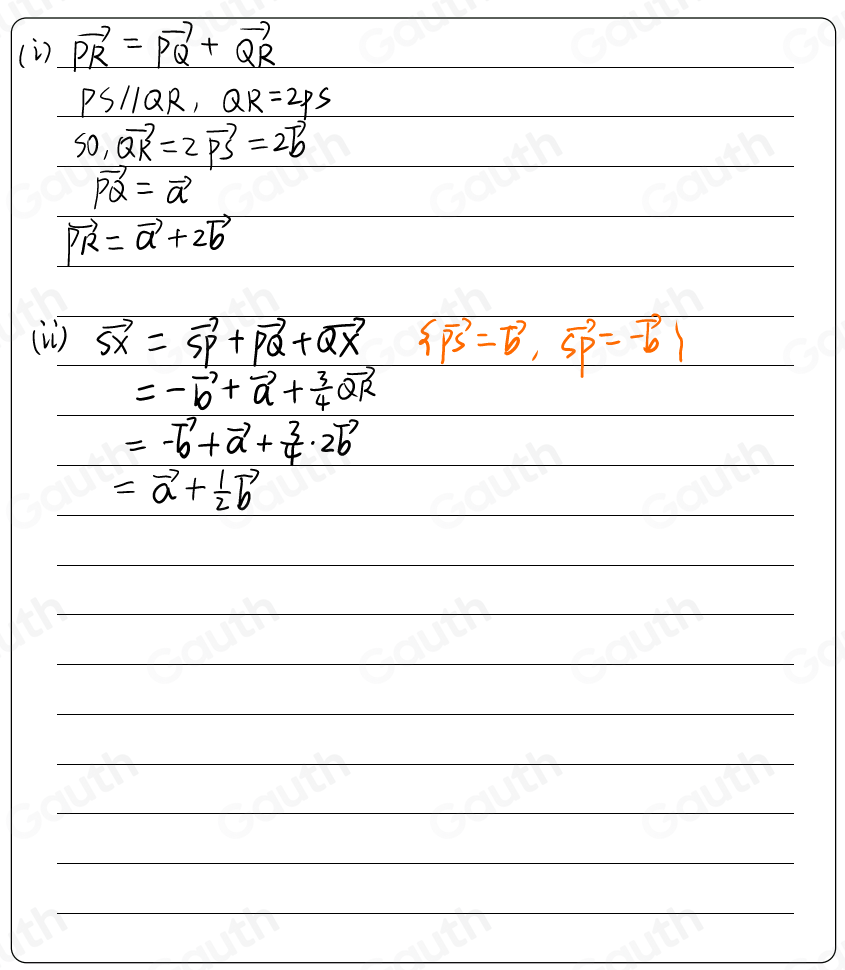 (i) $\overrightarrow{PR} = \overrightarrow{PQ} + \overrightarrow{QR}$
PS//QR, QR=2PS
so, $\overrightarrow{QR} = 2\overrightarrow{PS} = 2\overrightarrow{b}$
$\overrightarrow{PQ} = \overrightarrow{a}$
$\overrightarrow{PR} = \overrightarrow{a} + 2\overrightarrow{b}$
(ii) $\overrightarrow{SX} = \overrightarrow{SP} + \overrightarrow{PQ} + \overrightarrow{QX}$ {$\overrightarrow{PS} = \overrightarrow{b}$, $\overrightarrow{SP} = -\overrightarrow{b}$}
$= -\overrightarrow{b} + \overrightarrow{a} + \frac{3}{4}\overrightarrow{QR}$
$= -\overrightarrow{b} + \overrightarrow{a} + \frac{3}{4} \cdot 2\overrightarrow{b}$
$= \overrightarrow{a} + \frac{1}{2}\overrightarrow{b}$
Gauth